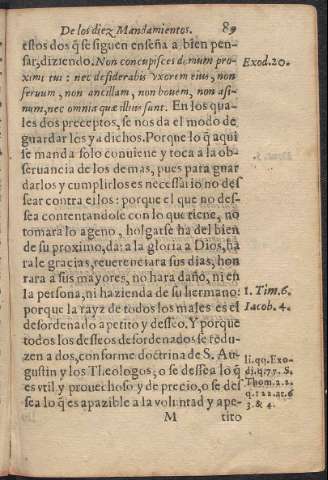 De los diez Mandamientos. 89
estos dos q̃ se siguen enseña a bien pen-
sar, diziendo. Non concupisces domum pro-
ximi tui: nec desiderabis vxorem eius, non
seruum, non ancillam, non bouem, non asi-
num, nec omnia quæ illius sunt. En los qua-
les dos preceptos, se nos da el modo de
guardar los ya dichos. Porque lo q̃ aqui
se manda solo conuiene y toca a la ob-
seruancia de los demas, pues para guar
darlos y cumplirlos es necessario no des
sear contra ellos: porque el que no des-
sea contentandose con lo que tiene, no
tomara lo ageno, holgarse ha del bien
de su proximo, dara la gloria a Dios, ha
rale gracias, reuerenciara sus dias, hon
rara a sus mayores, no hara daño, ni en
la persona, ni hazienda de su hermano:
porque la rayz de todos los males es el
desordenado apetito y desseo. Y porque
todos los desseos desordenados se redu-
zen a dos, conforme doctrina de S. Au-
gustin y los Theologos, o se dessea lo q̃
es vtil y prouechoso y de precio, o se des
sea lo q̃ es apazible a la voluntad y ape-
M tito
Exod. 20.
1. Tim. 6.
Iacob. 4.
li. qq. Exo-
di. q. 77. S.
Thom. 2. 2.
q. 122. ar. 6
3. & 4.